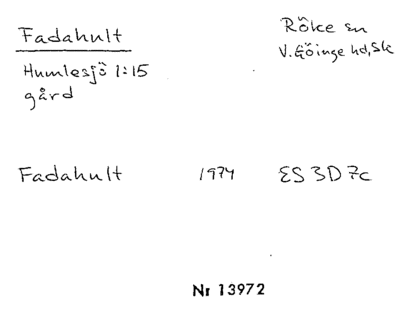 Fadahult
Röke sn
V. Göinge hd, Sk
Humlesjö 1:15
gård
Fadahult 1974 ES 3D 7c
Nr 13972